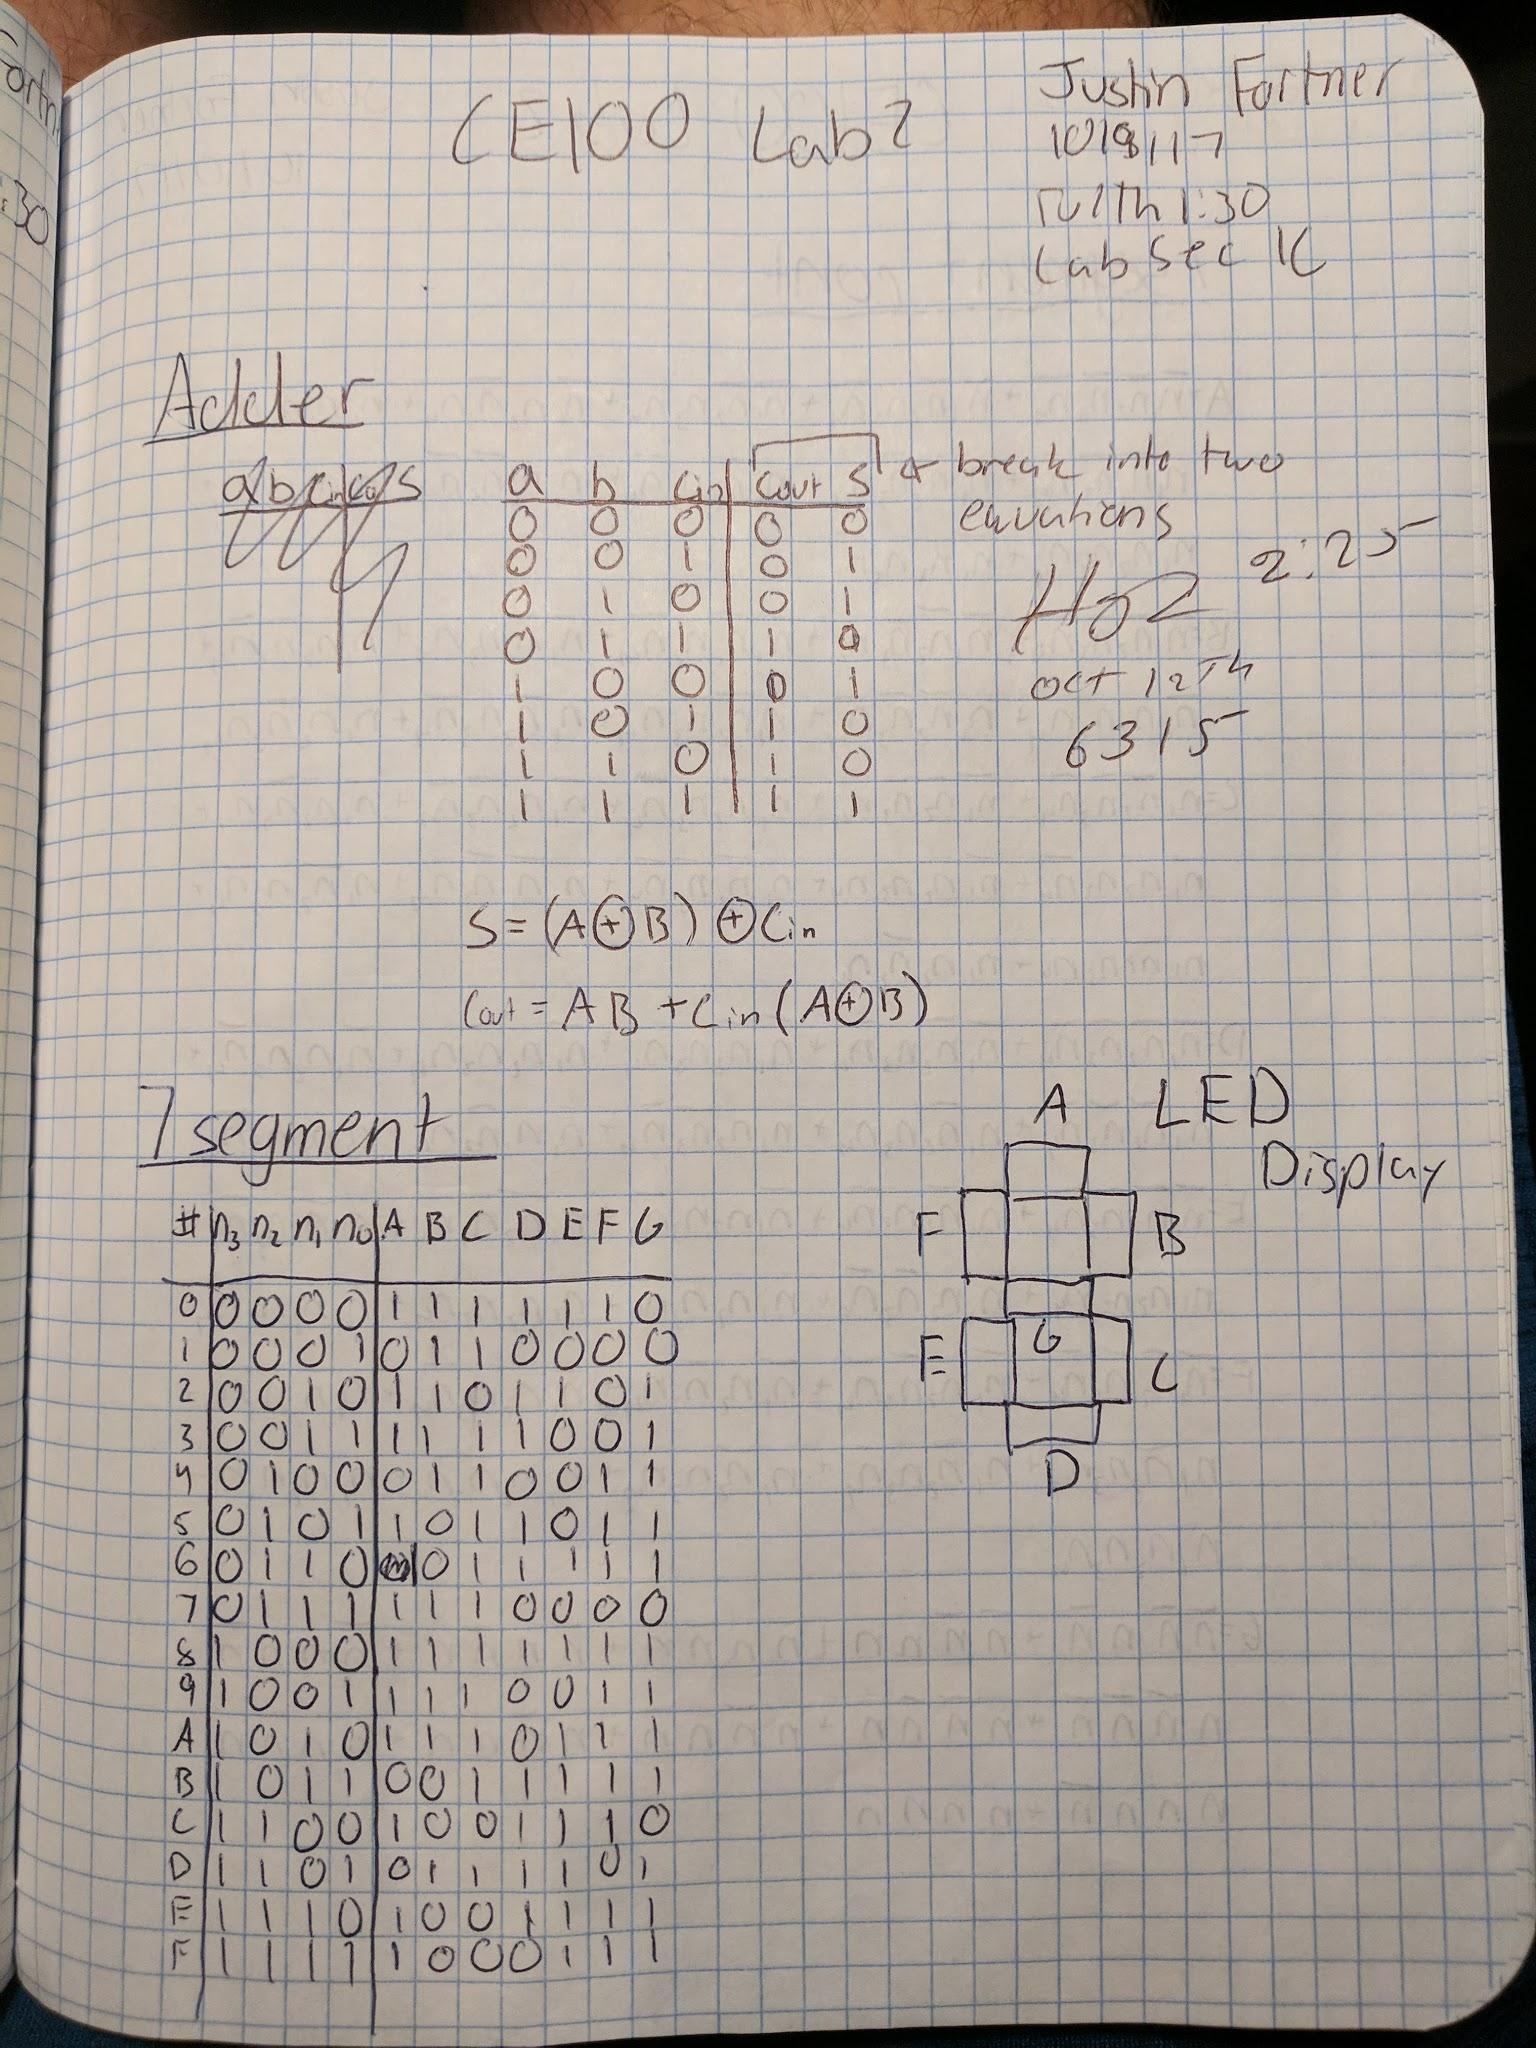 CE100 Lab 2
Justin Fortner
10/8/17
TU/TH 1:30
Lab Sec 1C
Adder
a b cin cout s
a b Cin Cout S ← break into two
equations
0 0 0 0 0
0 0 1 0 1
0 1 0 0 1
0 1 1 1 0
1 0 0 0 1
1 0 1 1 0
1 1 0 1 0
1 1 1 1 1
2:25
Oct 12th
6315
S = (A⊕B)⊕Cin
Cout = AB + Cin(A⊕B)
7 segment
# n3 n2 n1 n0 A B C D E F G
0 0 0 0 0 1 1 1 1 1 1 0
1 0 0 0 1 0 1 1 0 0 0 0
2 0 0 1 0 1 1 0 1 1 0 1
3 0 0 1 1 1 1 1 1 0 0 1
4 0 1 0 0 0 1 1 0 0 1 1
5 0 1 0 1 1 0 1 1 0 1 1
6 0 1 1 0 1 0 1 1 1 1 1
7 0 1 1 1 1 1 1 0 0 0 0
8 1 0 0 0 1 1 1 1 1 1 1
9 1 0 0 1 1 1 1 0 0 1 1
A 1 0 1 0 1 1 1 0 1 1 1
B 1 0 1 1 0 0 1 1 1 1 1
C 1 1 0 0 1 0 0 1 1 1 0
D 1 1 0 1 0 1 1 1 1 0 1
E 1 1 1 0 1 0 0 1 1 1 1
F 1 1 1 1 1 0 0 0 1 1 1
LED
Display
A
F B
G
E C
D